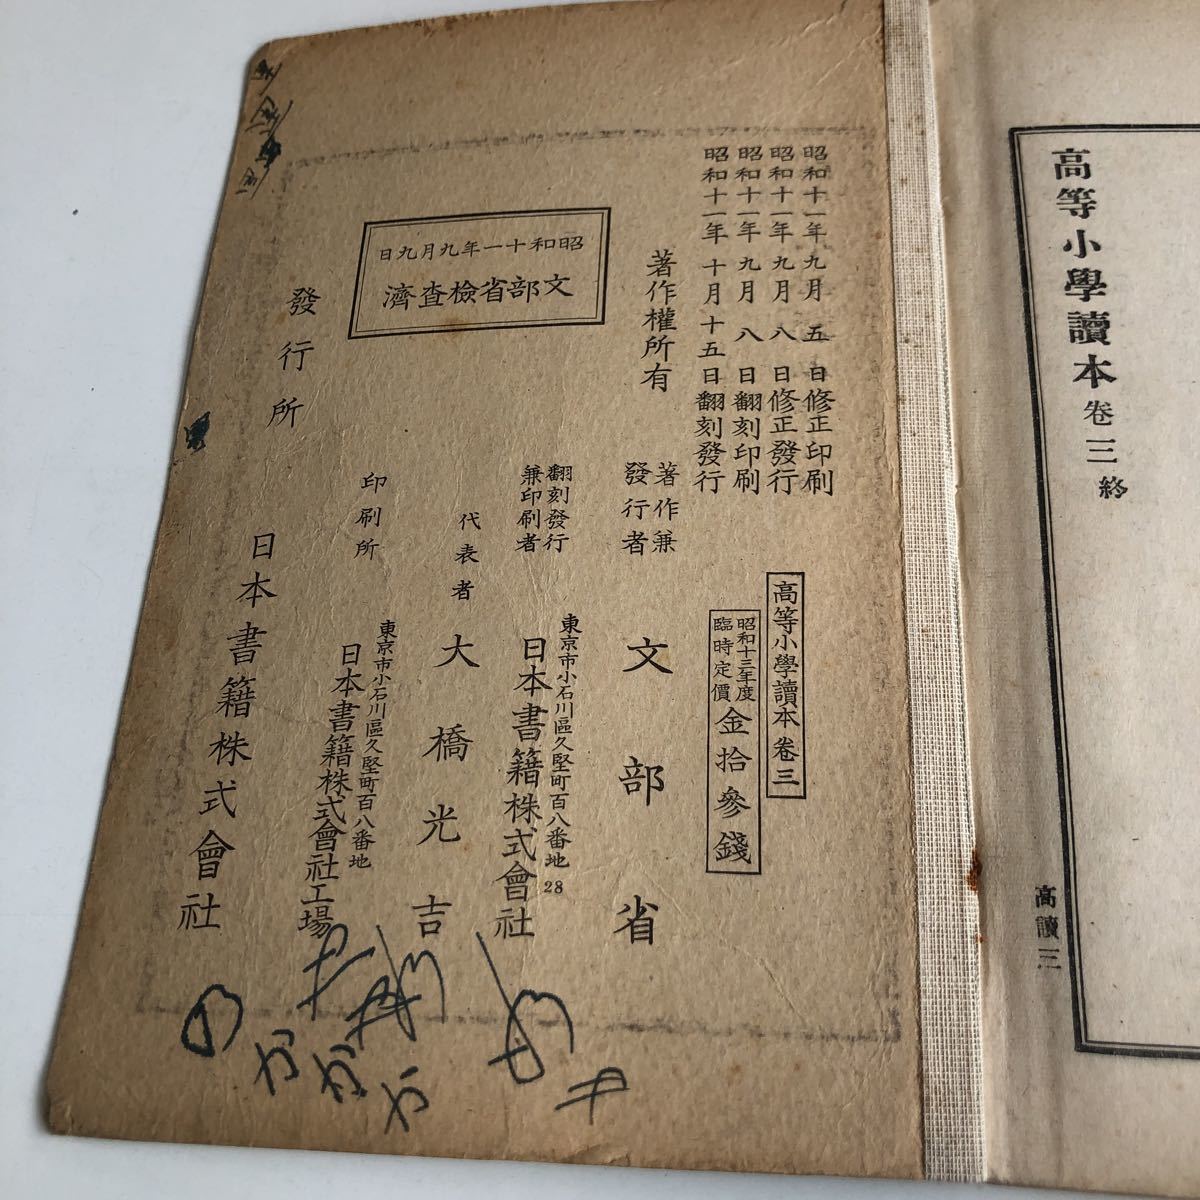 高等小學讀本 卷三 終
高讀三
昭和十一年九月五日修正印刷
昭和十一年九月八日修正發行
昭和十一年九月八日翻刻印刷
昭和十一年十月十五日翻刻發行
高等小學讀本卷三
昭和十三年度
臨時定價
金拾參錢
著作權所有
著作兼
發行者
文部省
翻刻發行
兼印刷者
東京市小石川區久堅町百八番地
28
日本書籍株式會社
代表者
大橋光吉
昭和十一年九月九日
文部省檢查濟
印刷所
東京市小石川區久堅町百八番地
日本書籍株式會社工場
發行所
日本書籍株式會社
の
か
か
か